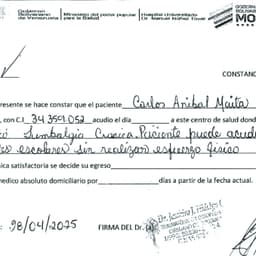 Gobierno Bolivariano de Venezuela | Ministerio del poder popular para la Salud | Hospital Universitario Dr. Manuel Núñez Tovar
GOBIERNO BOLIVARIANO
MO
CONSTANC
resente se hace constar que el paciente Carlos Anibal Maita
, con C.I. 34 359.052 acudio el dia a este centro de salud dond
Lumbalgia Cronica. Paciente puede acud
escolares sin realizar esfuerzo fisico
ica satisfactoria se decide su egreso
edico absoluto domiciliario por días a partir de la fecha actual.
: 28/04/2025 FIRMA DEL Dr. (a)